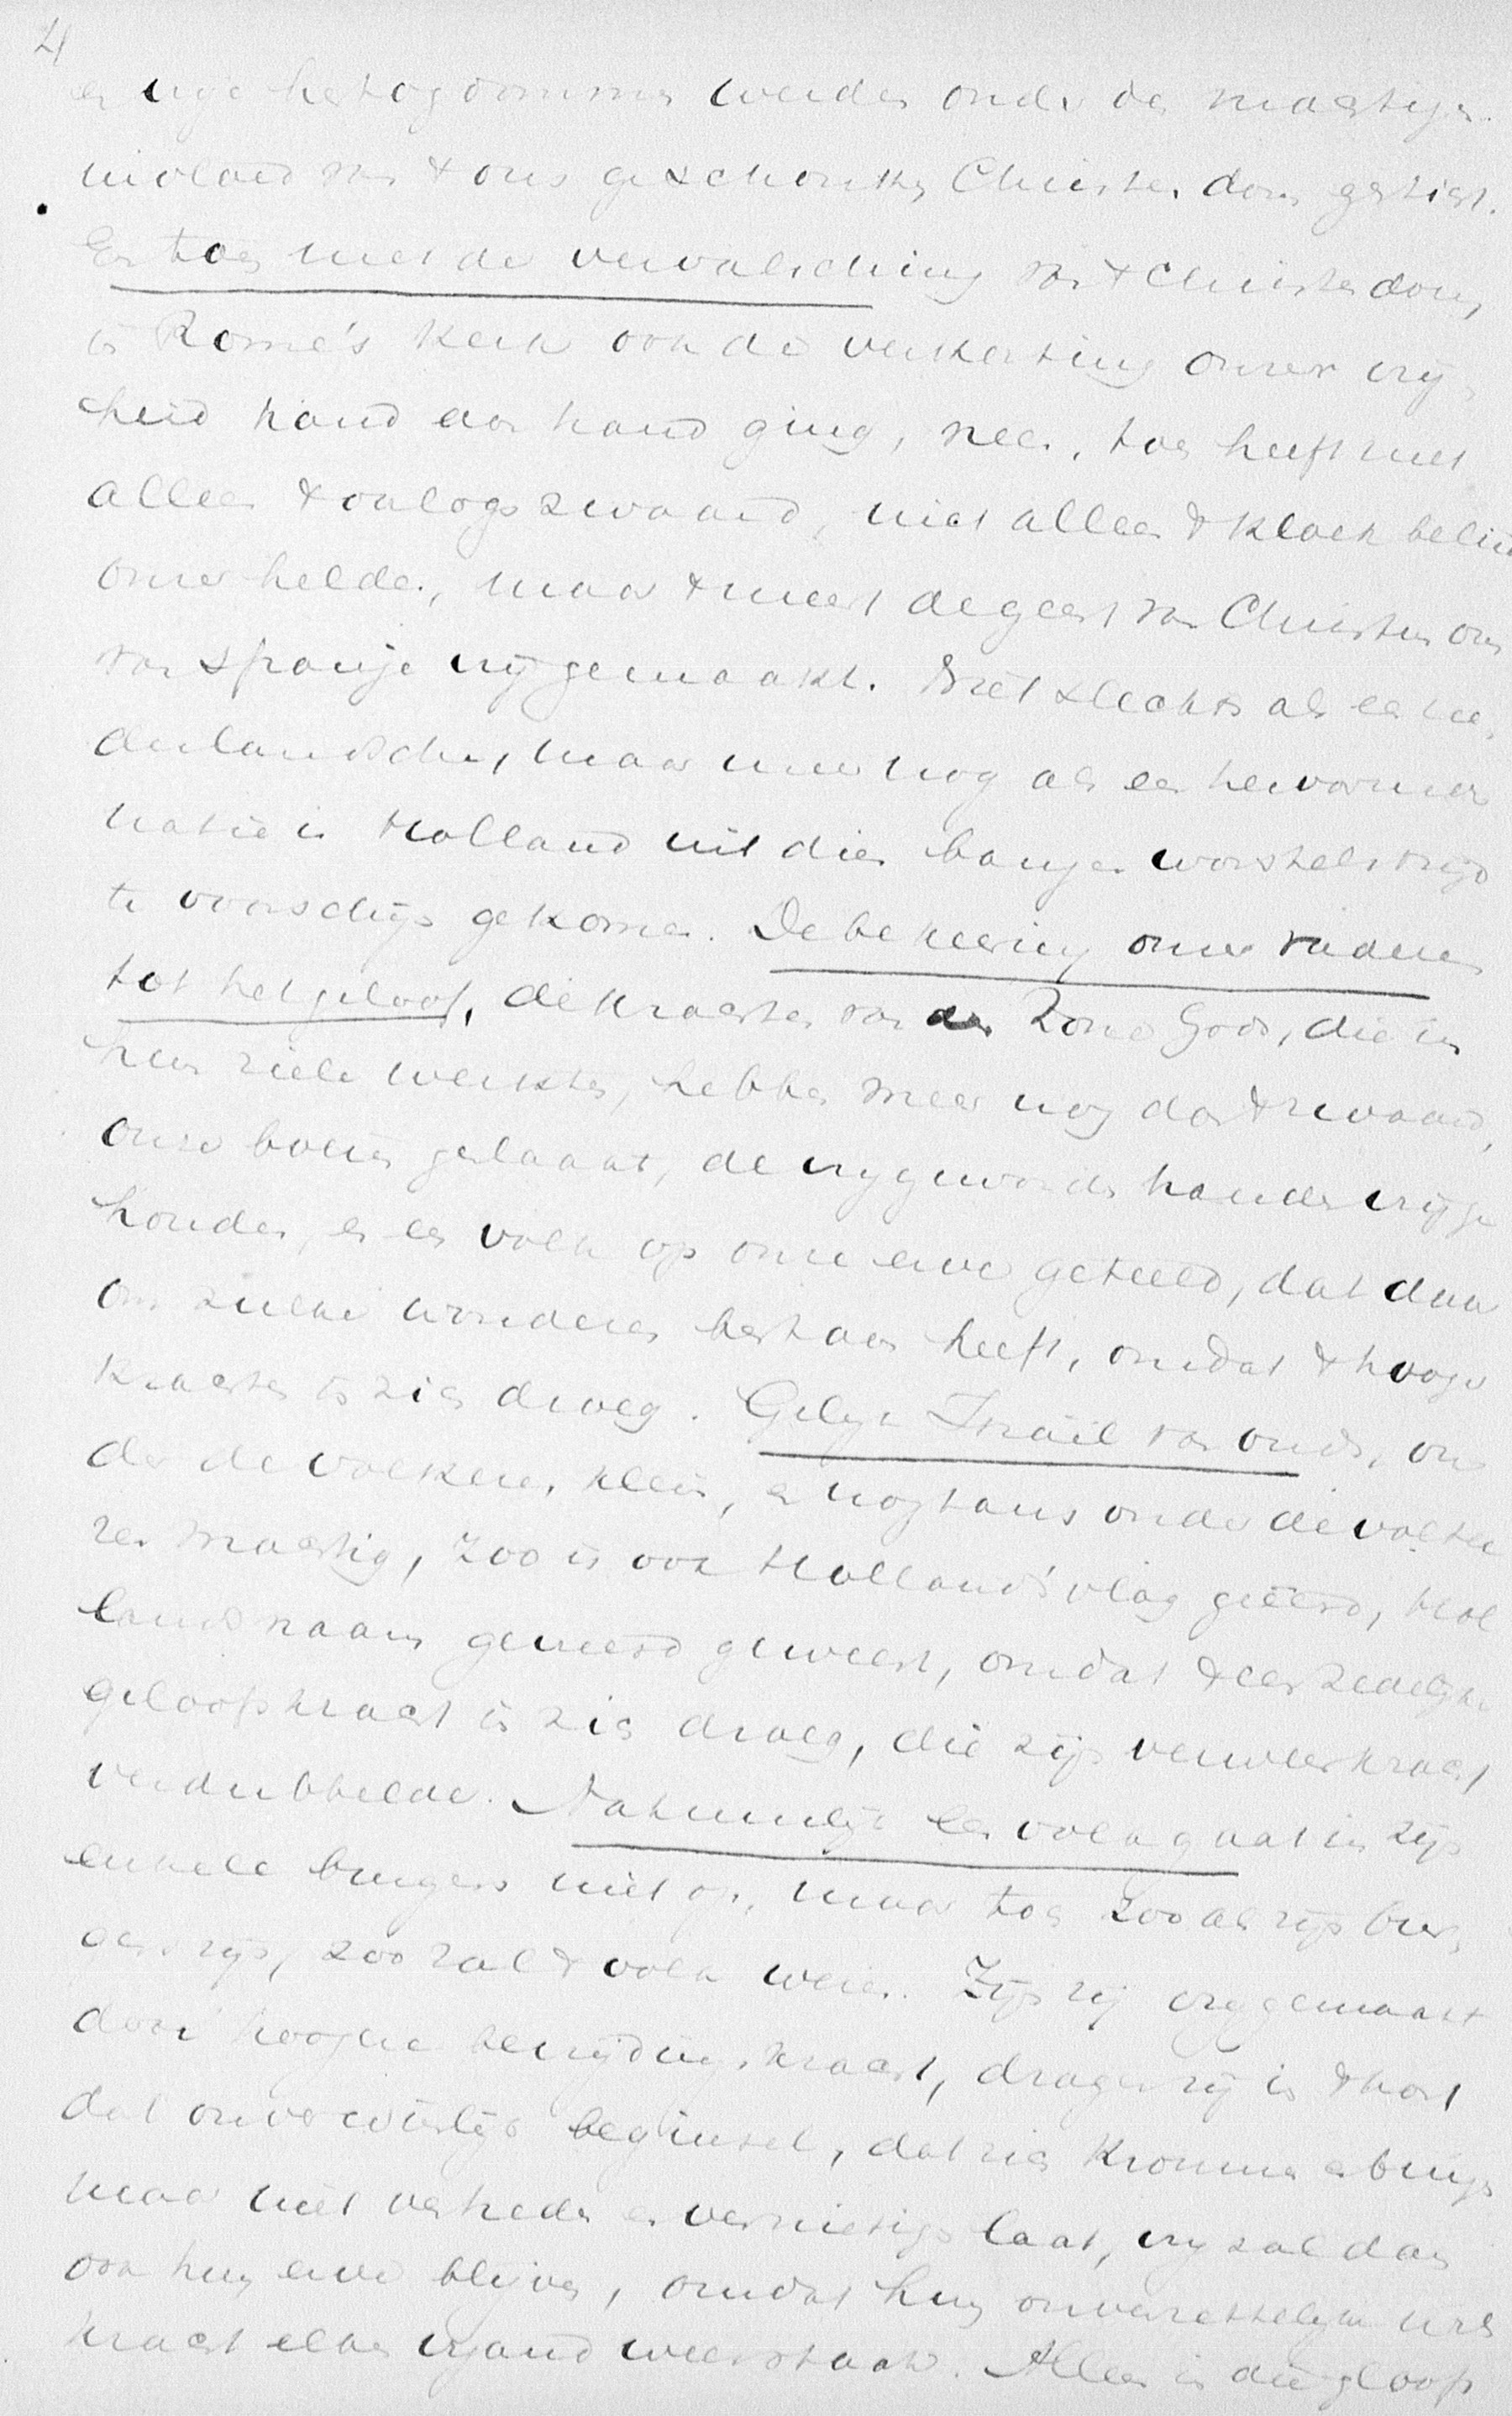 4
en vrije hertogdommen werden onder den machtigen
invloed van 't ons geschonken Christendom gesticht.
En toen met de vervalsching van 't Christendom,
in Rome's kerk ook de verkorting onzer vrij-
heid hand aan hand ging, neen, toen heeft niet
alleen 't oorlogszwaard, niet alleen 't kloek beleid
onzer helden, maar 't meest de geest van Christus ons
van Spanje vrijgemaakt. Niet slechts als een ne-
derlandsche, maar meer nog als een hervormde
natie is Holland uit dien bangen worstelstrijd
te voorschijn gekomen. De bekeering onzer vaderen
tot het geloof, de krachten van den Zone Gods, die in
hun ziele werkten, hebben meer nog dan 't zwaard,
onze boeien geslaakt, de vrijgeworden handen vrij ge
houden, en een volk op onze erve geteeld, dat daar
om zulke wonderen bestaan heeft, omdat 't hooger
krachten in zich droeg. Gelijk Israël van ouds, on
der de volkeren klein, en nogtans onder de volke
ren machtig, zoo is ook Holland's vlag geëerd, Hol
lands naam gevreesd geweest, omdat 't een zedelijke
geloofskracht in zich droeg, die zijn verweerkracht
verdubbelde. Natuurlijk een volk gaat in zijn
enkele burgers niet op, maar toch zooals zijn bur-
gers zijn, zoo zal 't volk wezen. Zijn zij vrijgemaakt
door hoogere bevrijdingskracht, dragen zij in 't hart
dat onverwinlijk beginsel, dat zich krommen en buigen
maar niet vertreden en vernietigen laat, vrij zal dan
ook hun erve blijven, omdat hun onverzettelijke wils
kracht elken vijand weerstaat. Alleen in die geloofs